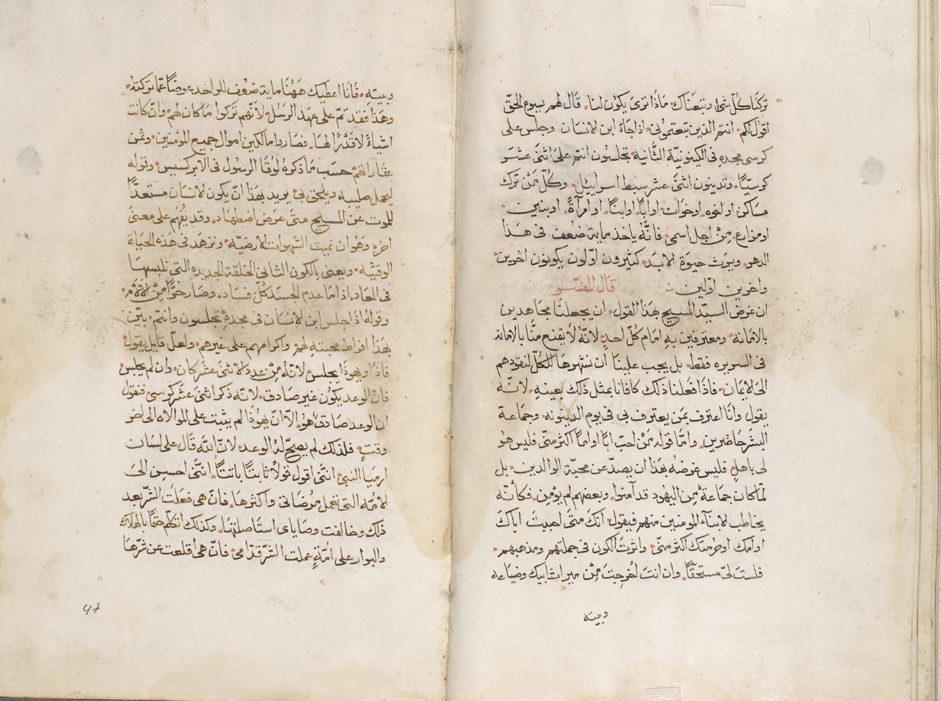 تركنا كلّ شئ وتبعناك ماذا ترى يكون لنا. قال لهم يسوع الحقّ
اقول لكم. انتم الذين تبعتموني. اذا جاء ابن الانسان وجلس على
كرسي مجده في الكينونيّة الثانية تجلسون انتم على اثنى عشر
كرسيّا. وتدينون اثنى عشر سبط اسراييل. وكلّ من ترك
مساكن او اخوه. او خوات. او ابًا. او ابنًا. او امرأةً. او بنين.
او مزارع. من اجل اسمي. فانّه ياخذ ماية ضعف في هذا
الدهر. ويرث حيوة الابد. كثيرون اوّلون يكونون اخرين.
واخرين اوّلين قال المفسّر
ان غرض السيّد المسيح بهذا القول. ان يجعلنا مجاهدين
بالامانه. ومعترفين به امام كلّ احدٍ. لانّه لا يقنع منّا بالامانه
في السريره فقط. بل يجب علينا ان نشهرها للكلّ لنقودهم
الى الايمان. فاذا فعلنا ذلك كافانا بمثل ذلك بعينه. لانّه
يقول وانا اعترف بمن يعترف بي في يوم الدينونه. وجماعة
البشر حاضرين. وامّا قوله من احبّ ابًا او امًّا اكثر منّي فليس هو
لي باهلٍ. فليس غرضه بهذا ان يصدّ عن محبّة الوالدين. بل
لمّا كان جماعة من اليهود قد آمنوا. وبعضهم لم يؤمن. فكأنّه
يخاطب الابناء المومنين منهم فيقول. انّك متى احببت اباك
او امك او حرمتك اكثر منّي. واثرت الكون في جملتهم ومذهبهم.
فلست لي مستحقًّا. وان انت اخرجت من ميراث ابيك وضياعه
وبيته
وبيته. فانا اعطيك ههنا ماية ضعف للواحد عوضًا عمّا تركته.
وهذا فقد تمّ على عهد الرسل. لانّهم تركوا ما كان لهم. وان كانت
اشياءً لا قدر لها. فصاروا مالكين اموال جميع المؤمنين. وثمن
عقاراتهم. حسب ما ذكره لوقا الرسول في الابركسيس. وقوله
ليحمل صليبه ويلحق بي. يريد بهذا انّ يكون الانسان مستعدًّا
للموت عن المسيح متى عرض اضطهاد. وقد يفهم على معنى
اخر. وهو ان نميت الشهوات الارضيّه. ونزهد في هذه الحياة
الوقتيّه. ويعني بالكون الثاني الخلقة الجديده التي نلبسها
في المعاد. اذا ما عدم الجسد كلّ فساد. وصار خوًّا من الالام.
وقوله اذا جلس ابن الانسان في مجده تجلسون وانتم. بيّن
بهذا افراط محبّته لهم. واكرامهم على غيرهم. ولعلّ قايل يقول.
فاذًا ويهوذا يجلس. لانّه من عدد الاثنى عشر كان. وان لم يجلس
فانّ الوعد يكون غير صادق. لانّه ذكر اثنى عشر كرسي. فنقول
ان الوعد صادق هو. الّا انّ يهوذا لم يثبت على الموالاه الى اخر
وقتٍ. فلذلك لم يصحّ له الوعد. لانّ الله قال على لسان
ارميا النبي. انّني اقول قولًا ثابتًا باتتًا. انّني احسن الى
الامّه التي تعمل مرضاتي واكثرها. فان هي فعلت الشرّ بعد
ذلك وخالفت وصاياي استاصلتها. وكذلك اتكلّم حتمًا بالهلاك
والبوار على امّةٍ عملت الشرّ قدّامي. فانّ هي اقلعت عن شرّها
47